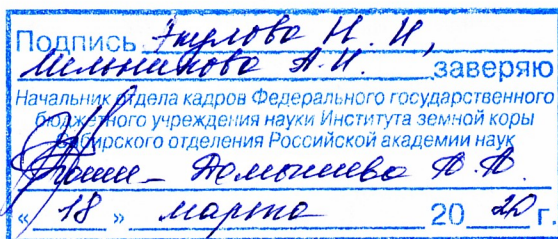 Подпись Н. И,
Мельникова А. И. заверяю
Начальник отдела кадров Федерального государственного
бюджетного учреждения науки Института земной коры
Сибирского отделения Российской академии наук
А. А.
« 18 » марта 2020 г.